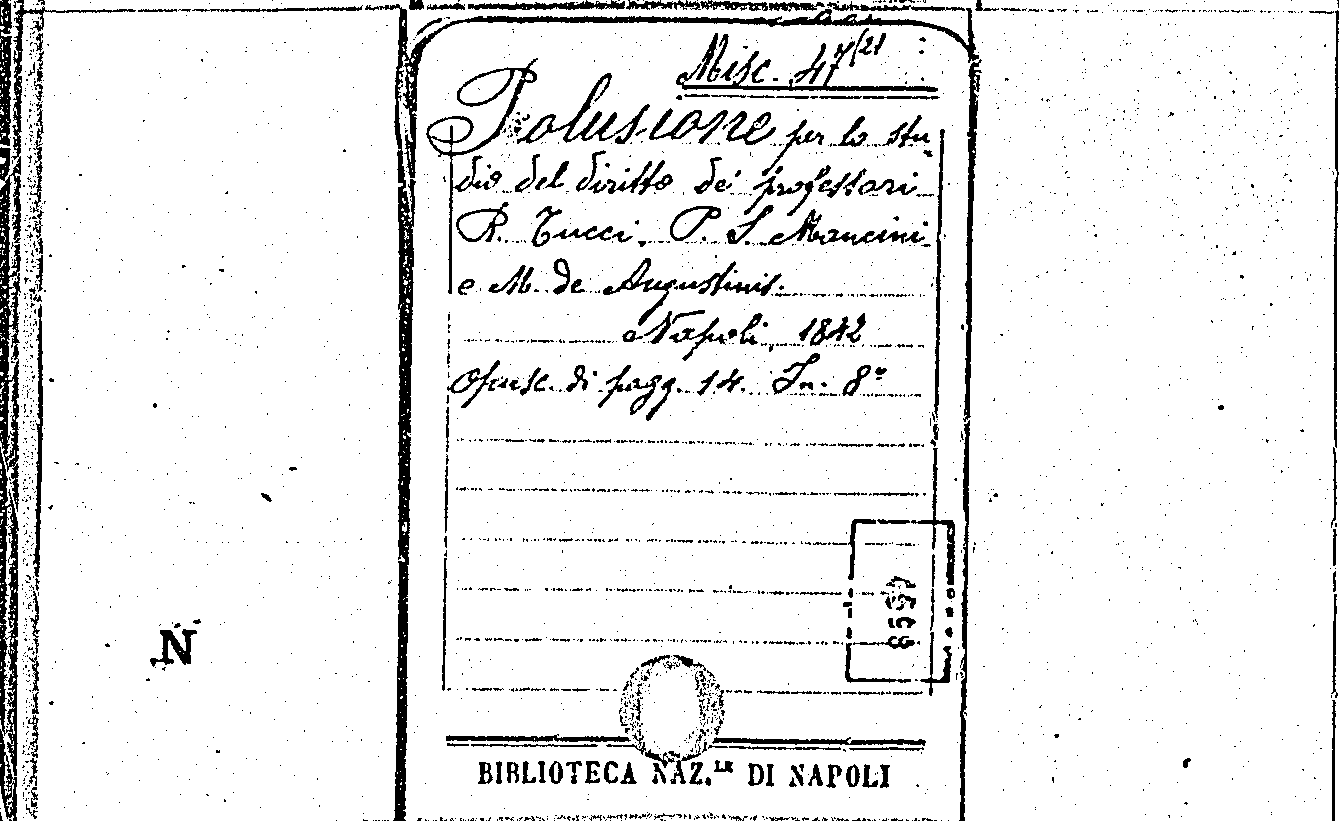 Misc. 47 7/21
Polusione per lo stu-
dio del diritto de' professori
R. Tucci, P. S. Mancini
e M. de Augustinis.
Napoli, 1842
Opusc. di pagg. 14. In. 8º
N
BIBLIOTECA NAZ.LE DI NAPOLI